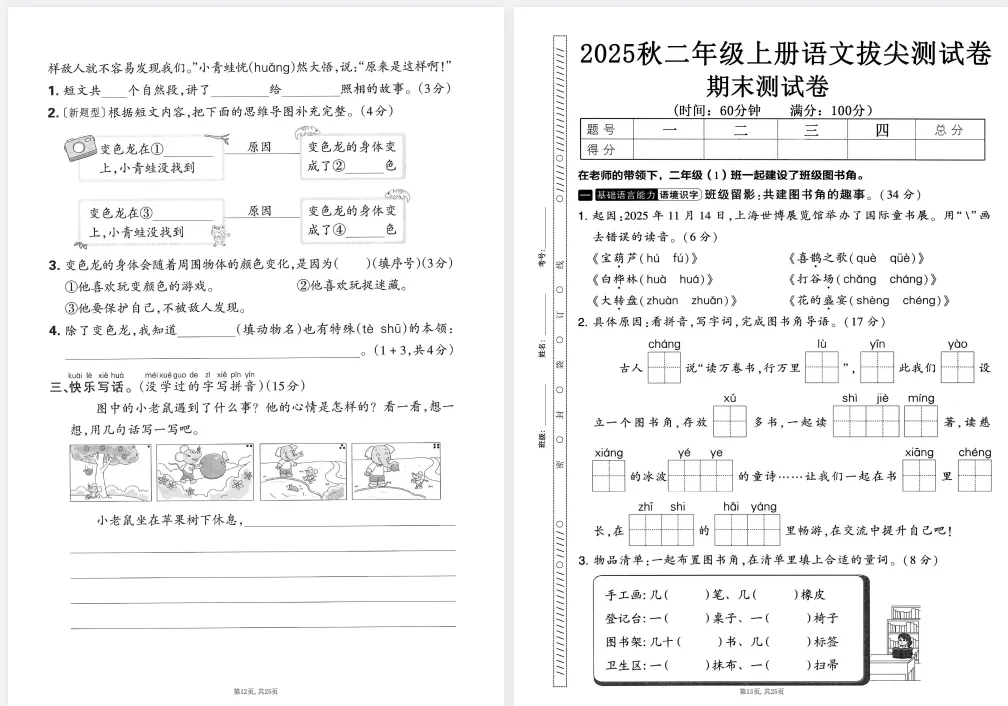 样敌人就不容易发现我们。”小青蛙恍(huǎng)然大悟,说:“原来是这样啊!”
1. 短文共____个自然段,讲了________给________照相的故事。(3分)
2.〔新题型〕根据短文内容,把下面的思维导图补充完整。(4分)
变色龙在①________上,小青蛙没找到
原因
变色龙的身体变成了②______色
变色龙在③________上,小青蛙没找到
原因
变色龙的身体变成了④______色
3. 变色龙的身体会随着周围物体的颜色变化,是因为(　　)(填序号)(3分)
①他喜欢玩变颜色的游戏。　②他喜欢玩捉迷藏。
③他要保护自己,不被敌人发现。
4. 除了变色龙,我知道________(填动物名)也有特殊(tè shū)的本领:
________________。(1+3,共4分)
kuài lè xiě huà　méi xué guo de zì xiě pīn yīn
三、快乐写话。(没学过的字写拼音)(15分)
图中的小老鼠遇到了什么事？他的心情是怎样的？看一看,想一
想,用几句话写一写吧。
小老鼠坐在苹果树下休息,________________
第12页, 共25页
2025秋二年级上册语文拔尖测试卷
期末测试卷
(时间：60分钟　满分：100分)
题号 一 二 三 四 总分
得分
在老师的带领下，二年级（1）班一起建设了班级图书角。
一 基础语言能力 语境识字 班级留影:共建图书角的趣事。(34分)
1. 起因:2025年11月14日,上海世博展览馆举办了国际童书展。用“\”画
去错误的读音。(6分)
《宝葫芦(hú　fú)》　《喜鹊之歌(què　qüè)》
《白桦林(huà　huá)》　《打谷场(chǎng　cháng)》
《大转盘(zhuàn　zhuǎn)》　《花的盛宴(shèng　chéng)》
2. 具体原因:看拼音,写字词,完成图书角导语。(17分)
cháng　lù　yǐn　yào
古人　说“读万卷书,行万里　”,　此我们　设
xǔ　shì　jiè　míng
立一个图书角,存放　多书,一起读　著,读慈
xiáng　yé　ye　xiāng　chéng
的冰波　的童诗……让我们一起在书　里
zhī　shi　hǎi　yáng
长,在　的　里畅游,在交流中提升自己吧!
3. 物品清单:一起布置图书角,在清单里填上合适的量词。(8分)
手工画:几(　　)笔、几(　　)橡皮
登记台:一(　　)桌子、一(　　)椅子
图书架:几十(　　)书、几(　　)标签
卫生区:一(　　)抹布、一(　　)扫帚
考号:
姓名:
班级:
密 ○ 封 ○ 装 ○ 订 ○ 线
第13页, 共25页